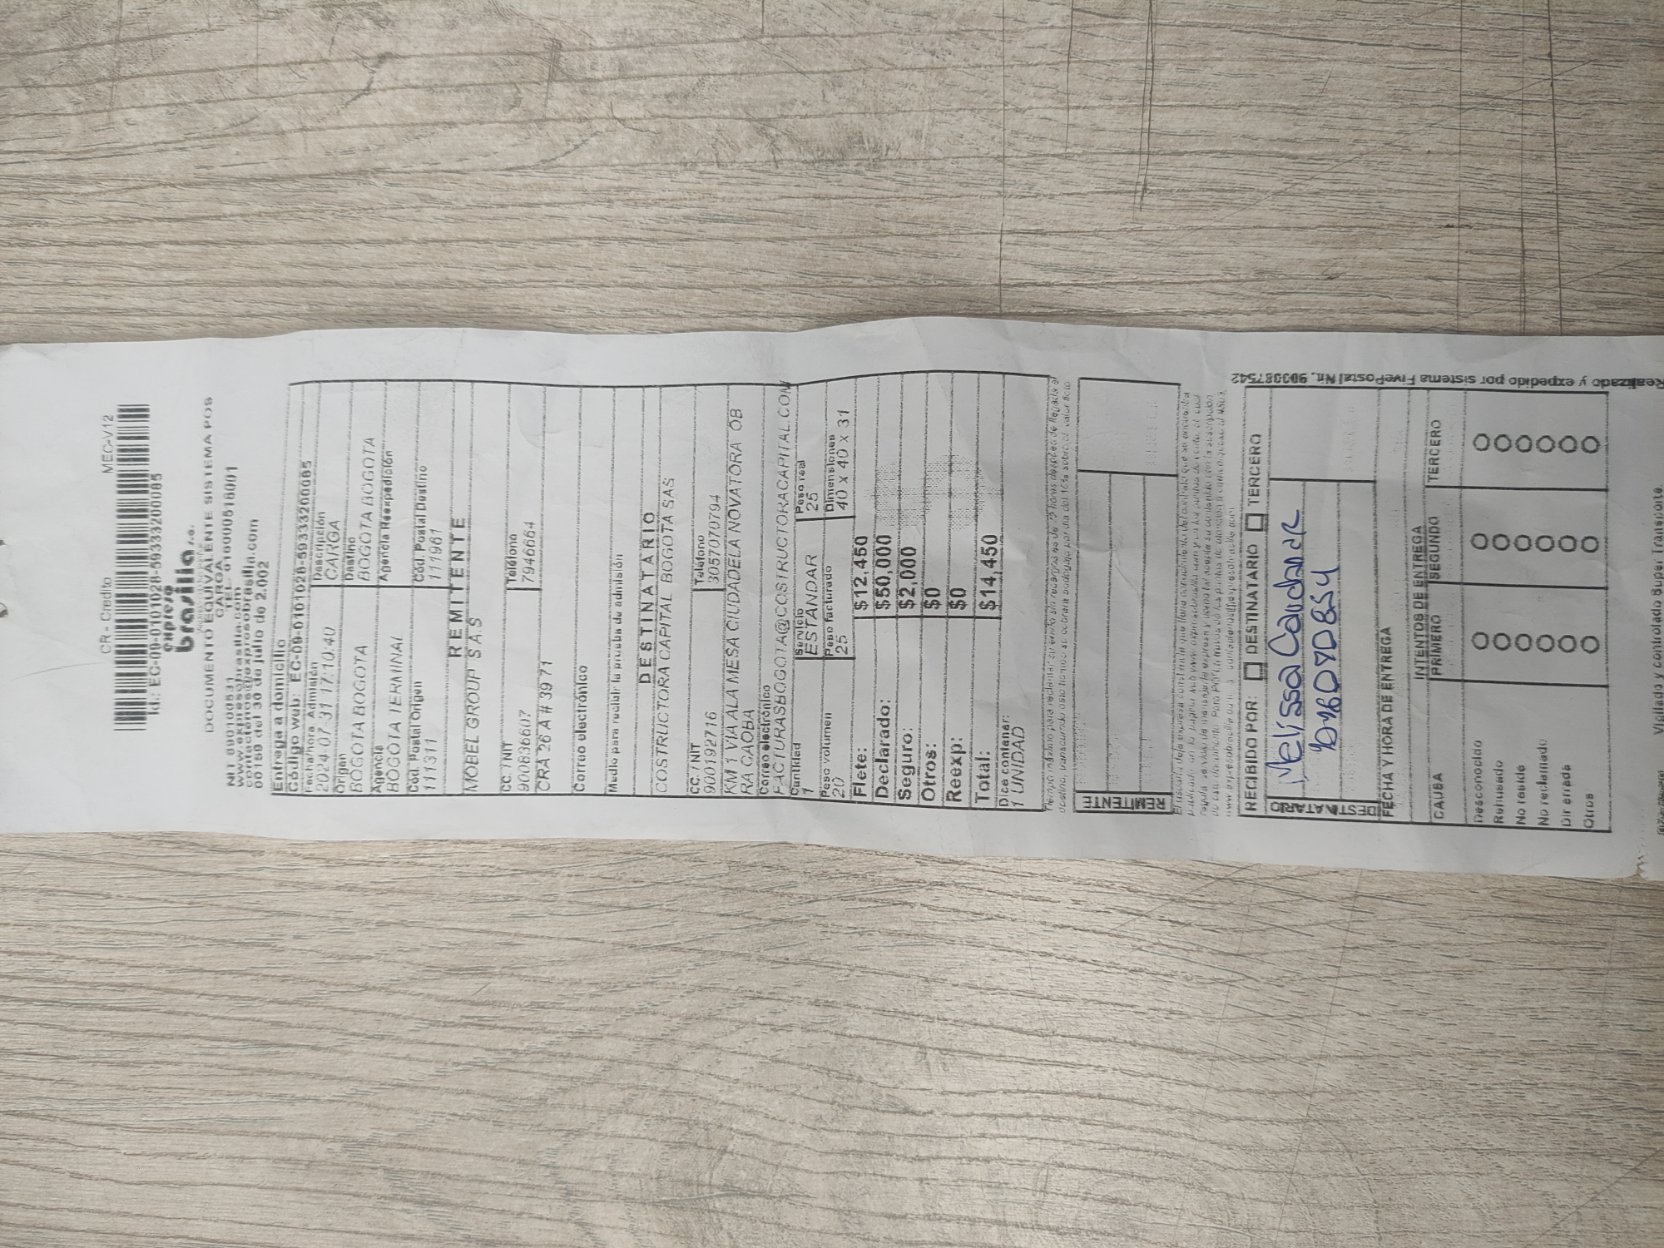 CR - Credito MEC-V12
Id.: EC-09-0101028-59333200085
expreso
brasilia s.a.
DOCUMENTO EQUIVALENTE SISTEMA POS
CARGA
NIT 890100531 TEL. 018000518001
www.expresobrasilia.com
contactenos@expresobrasilia.com
00159 del 30 de julio de 2.002
Entrega a domicilio
Código web: EC-09-0101028-59333200085
Fecha/hora Admisión Descripción
2024-07-31 17:10:40 CARGA
Origen Destino
BOGOTA BOGOTA BOGOTA BOGOTA
Agencia Agencia Reexpedición
BOGOTA TERMINAL
Cod. Postal Origen Cod. Postal Destino
111311 111961
REMITENTE
MOBEL GROUP S A S
CC. / NIT Teléfono
900836607 7946664
CRA 26 A # 39 71
Correo electrónico
Medio para recibir la prueba de admisión
DESTINATARIO
COSTRUCTORA CAPITAL BOGOTA SAS
CC. / NIT Teléfono
900192716 3057070794
KM 1 VIA ALA MESA CIUDADELA NOVATORA OB
RA CAOBA
Correo electrónico
FACTURASBOGOTA@COSTRUCTORACAPITAL.COM
Cantidad Servicio Peso real
1 ESTANDAR 25
Peso volumen Peso facturado Dimensiones
20 25 40 x 40 x 31
Flete: $12,450
Declarado: $50,000
Seguro: $2,000
Otros: $0
Reexp: $0
Total: $14,450
Dice contener:
1 UNIDAD
REMITENTE
RECIBIDO POR: DESTINATARIO TERCERO
DESTINATARIO
Melissa
FECHA Y HORA DE ENTREGA
INTENTOS DE ENTREGA
CAUSA PRIMERO SEGUNDO TERCERO
Desconocido
Rehusado
No reside
No reclamado
Dir errada
Otros
Realizado y expedido por sistema FivePostal Nit. 900087542
Vigilado y controlado Super Transporte.